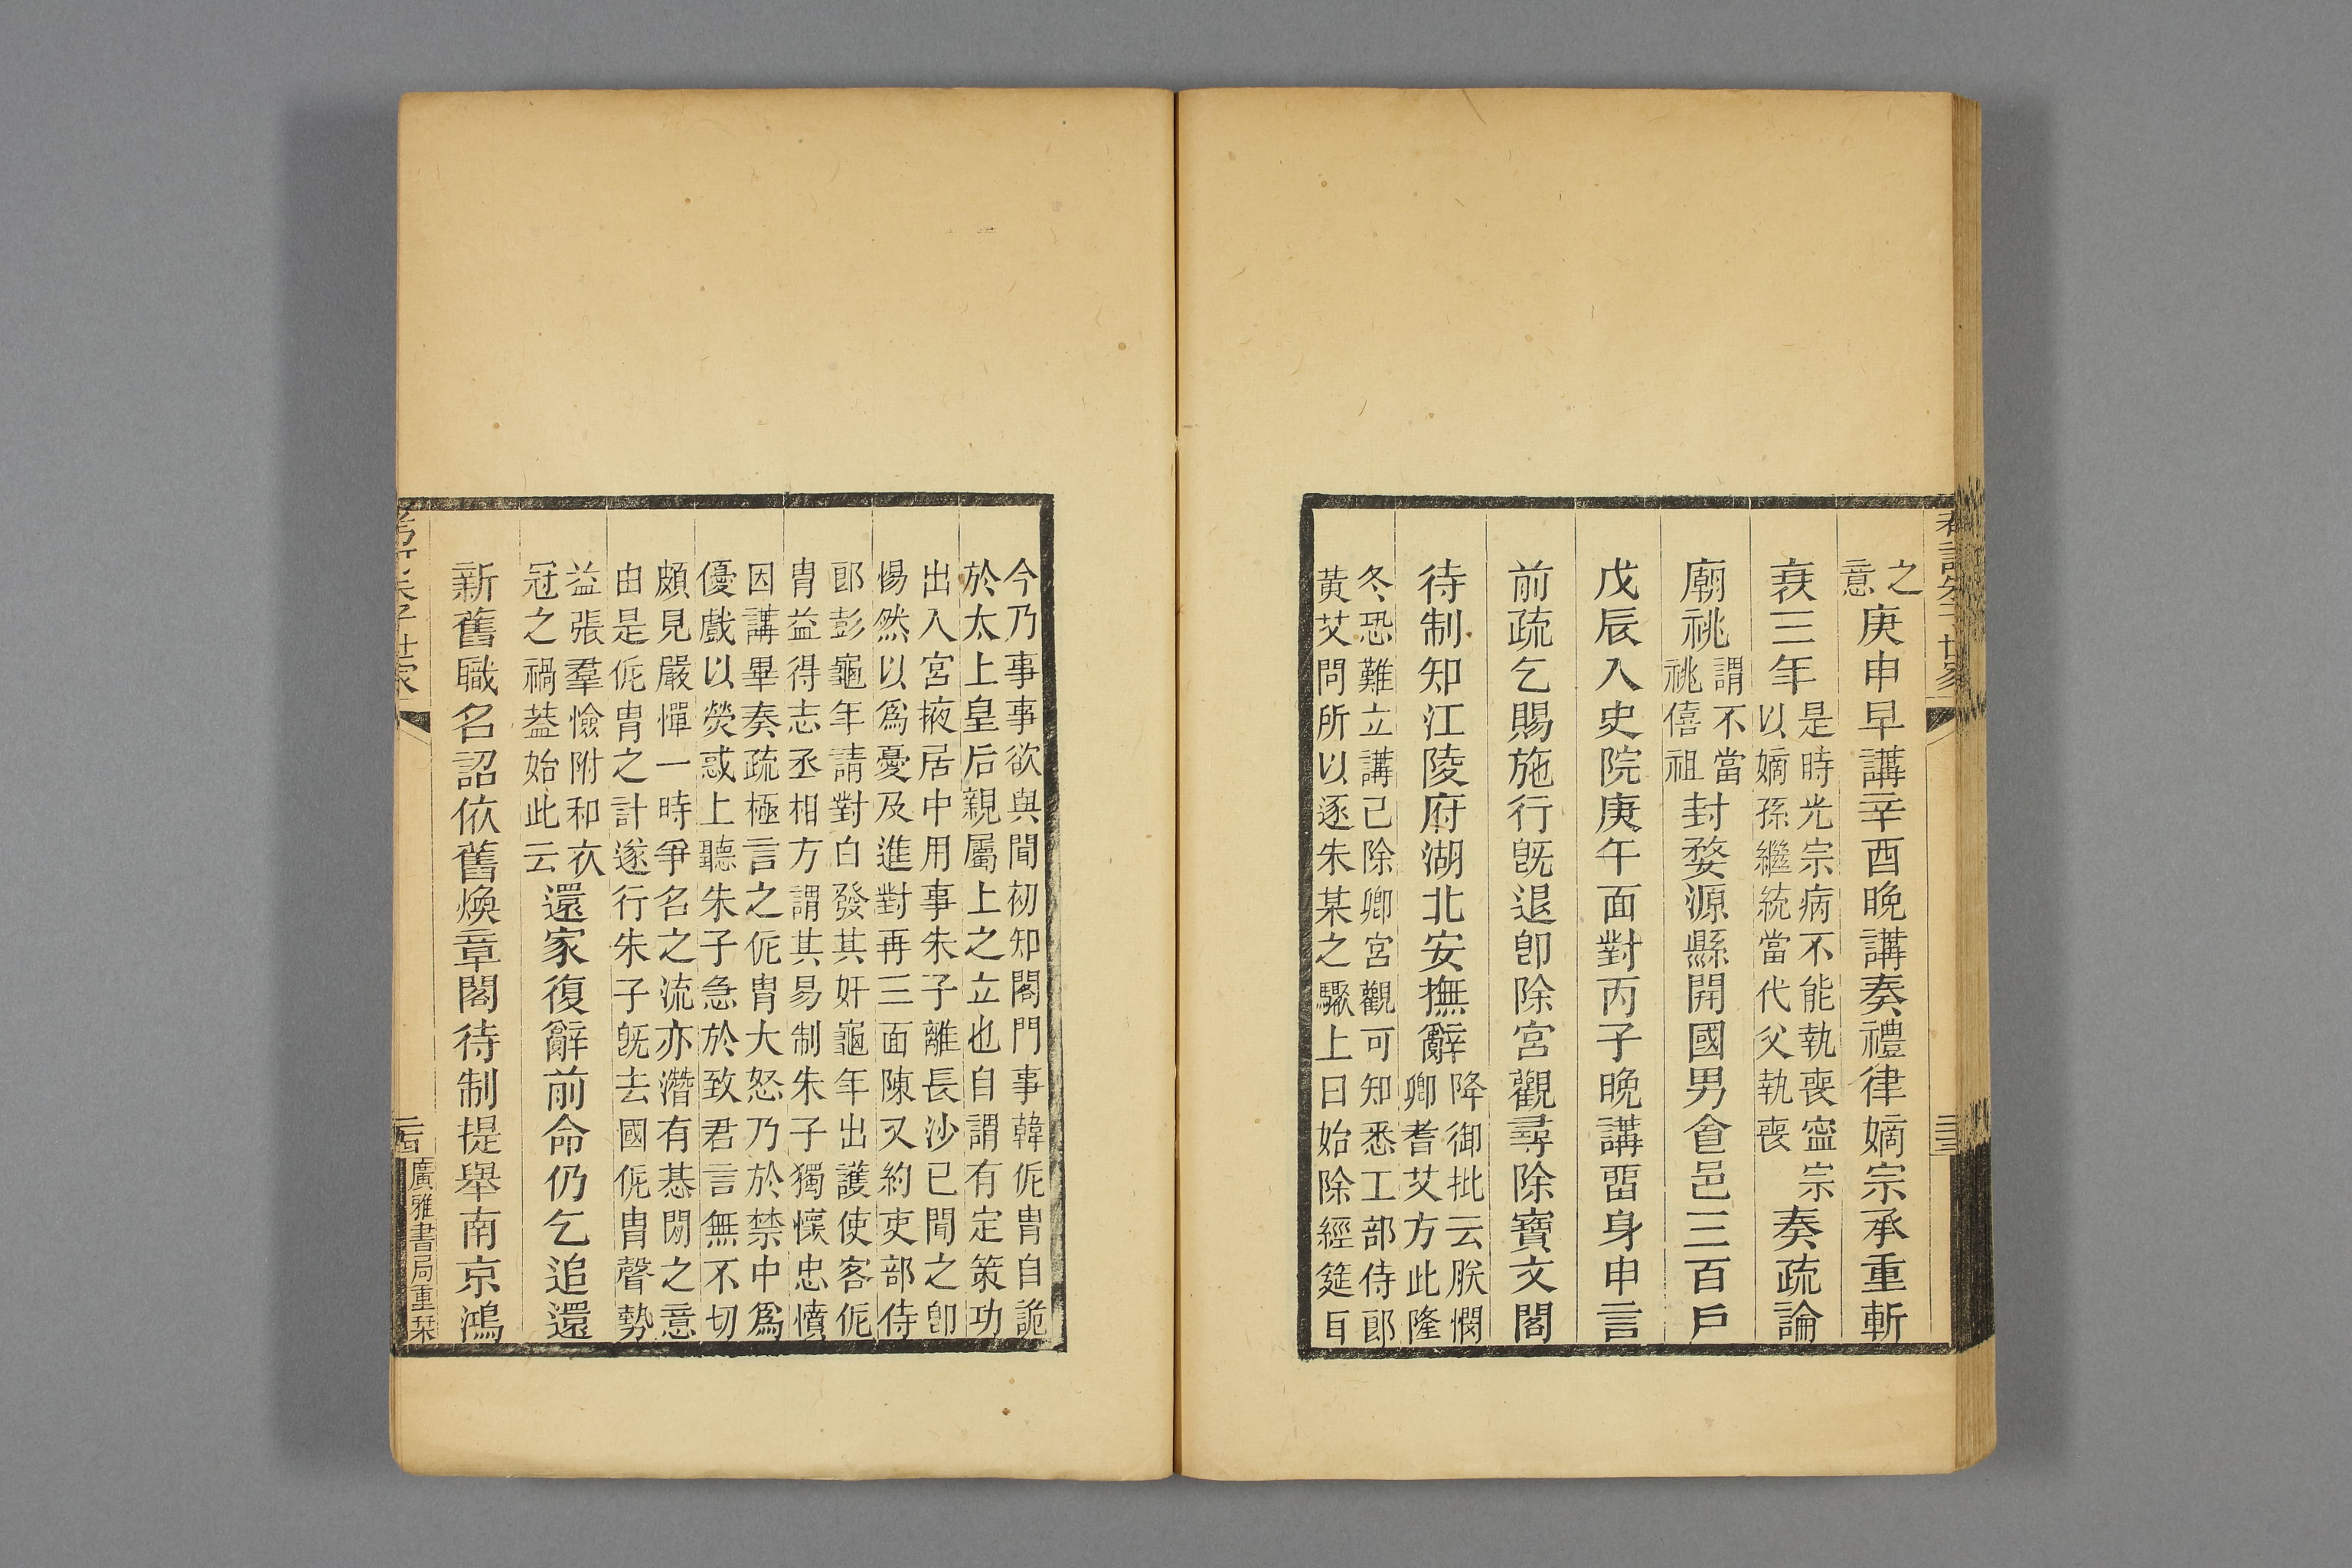 之意庚申早講辛酉晚講奏禮律嫡宗承重斬
衰三年是時光宗病不能執喪寍宗以嫡孫繼統當代父執喪奏疏論
廟祧謂不當祧僖祖封婺源縣開國男食邑三百戶
戊辰入史院庚午面對丙子晚講畱身申言
前疏乞賜施行旣退卽除宮觀尋除寶文閣
待制知江陵府湖北安撫辭降御批云朕憫卿耆艾方此隆
冬恐難立講已除卿宮觀可知悉工部侍郎
黃艾問所以逐朱某之驟上曰始除經筵耳
今乃事事欲與聞初知閣門事韓侂冑自詭
於太上皇后親屬上之立也自謂有定策功
出入宮掖居中用事朱子離長沙已聞之卽
惕然以爲憂及進對再三面陳又約吏部侍
郎彭龜年請對白發其奸龜年出護使客侂
冑益得志丞相方謂其易制朱子獨懷忠憤
因講畢奏疏極言之侂冑大怒乃於禁中爲
優戲以熒惑上聽朱子急於致君言無不切
頗見嚴憚一時爭名之流亦潛有惎閒之意
由是侂冑之計遂行朱子旣去國侂冑聲勢
益張羣憸附和衣
冠之禍葢始此云還家復辭前命仍乞追還
新舊職名詔依舊煥章閣待制提舉南京鴻
廣雅書局重栞